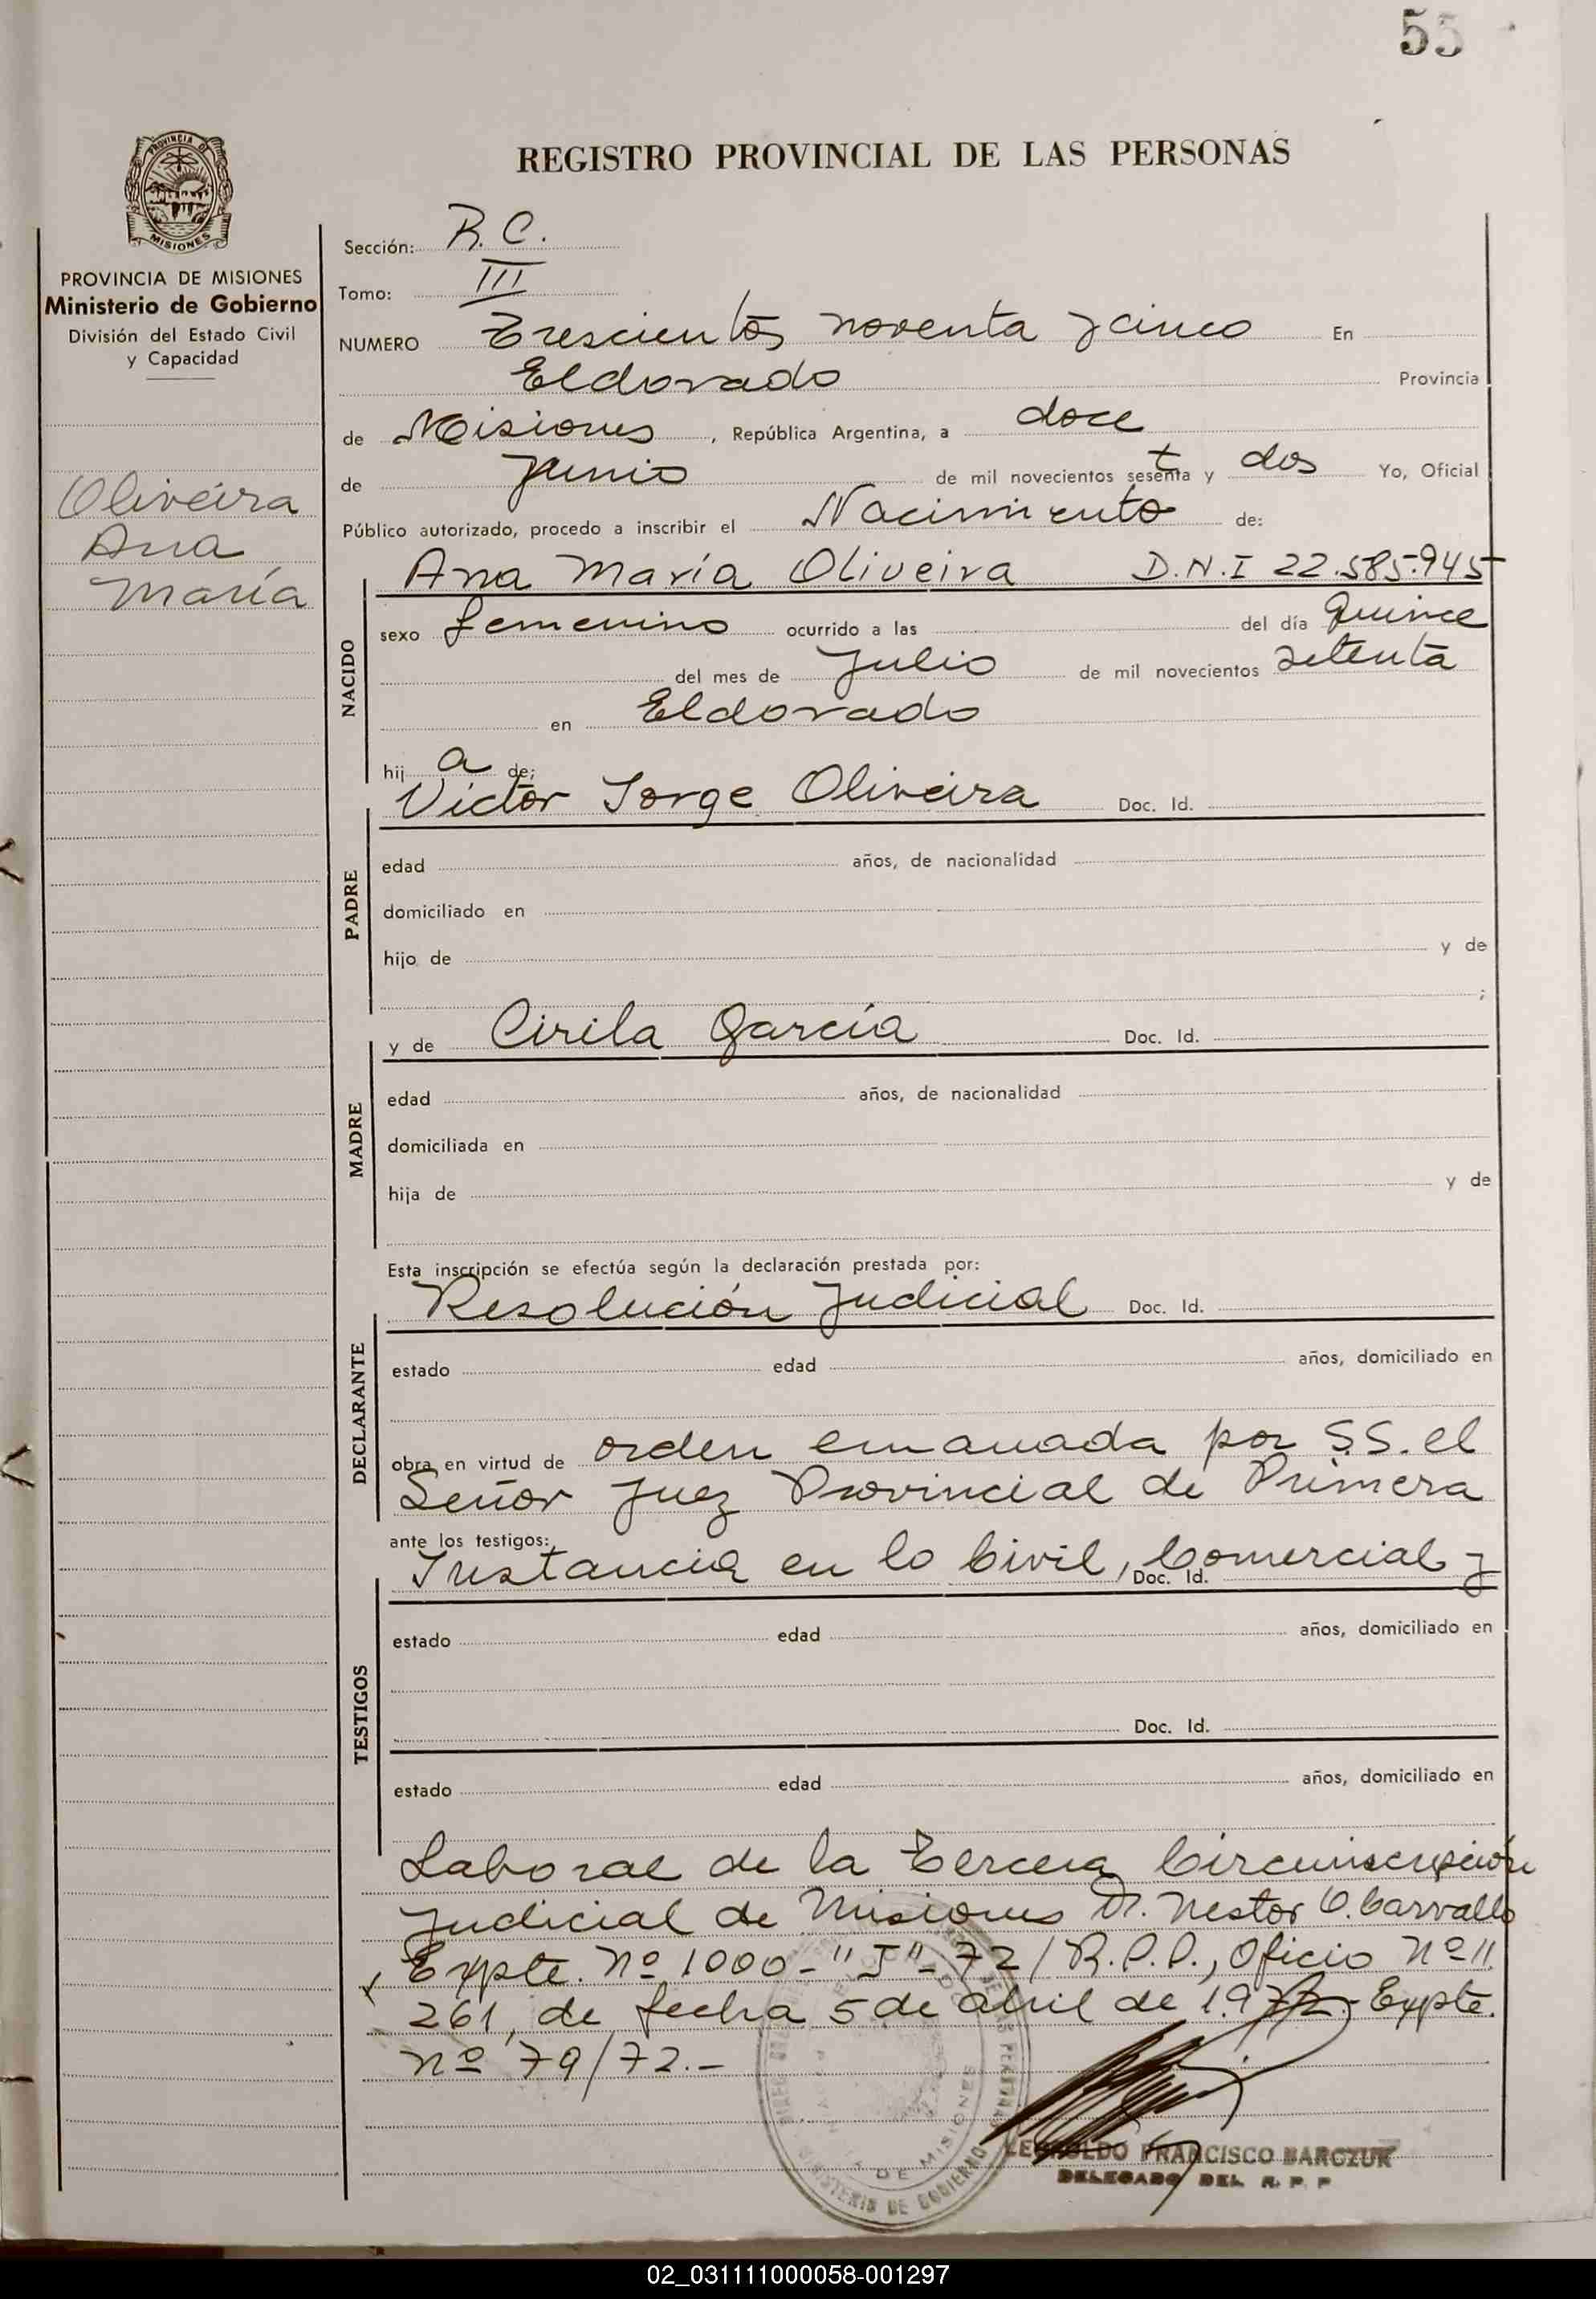 55
REGISTRO PROVINCIAL DE LAS PERSONAS
PROVINCIA DE
MISIONES
PROVINCIA DE MISIONES
Ministerio de Gobierno
División del Estado Civil
y Capacidad
Oliveira
Ana
María
Sección: R. C.
Tomo: III
NUMERO Trescientos noventa y cinco En
Eldorado Provincia
de Misiones, República Argentina, a doce
de Junio de mil novecientos setenta y dos Yo, Oficial
Público autorizado, procedo a inscribir el Nacimiento de:
NACIDO
Ana María Oliveira D.N.I 22.585.945
sexo femenino ocurrido a las del día Quince
del mes de Julio de mil novecientos setenta
en Eldorado
hij a de;
PADRE
Victor Jorge Oliveira Doc. Id.
edad años, de nacionalidad
domiciliado en
hijo de y de
;
MADRE
y de Cirila García Doc. Id.
edad años, de nacionalidad
domiciliada en
hija de y de
Esta inscripción se efectúa según la declaración prestada por:
DECLARANTE
Resolución Judicial Doc. Id.
estado edad años, domiciliado en
obra en virtud de orden emanada por S.S. el
Señor Juez Provincial de Primera
ante los testigos:
TESTIGOS
Instancia en lo Civil, Comercial y
Doc. Id.
estado edad años, domiciliado en
Doc. Id.
estado edad años, domiciliado en
Laboral de la Tercera Circunscripción
Judicial de Misiones Dr. Nestor O. Carvallo
Expte. Nº 1000-"J"-72/R.P.P., Oficio Nº 11.
261, de fecha 5 de Abril de 1972.- Expte.
nº 79/72.-
MINISTERIO DE GOBIERNO
DE MISIONES
LEOPOLDO FRANCISCO BARCZUK
DELEGADO DEL R. P. P
02_031111000058-001297